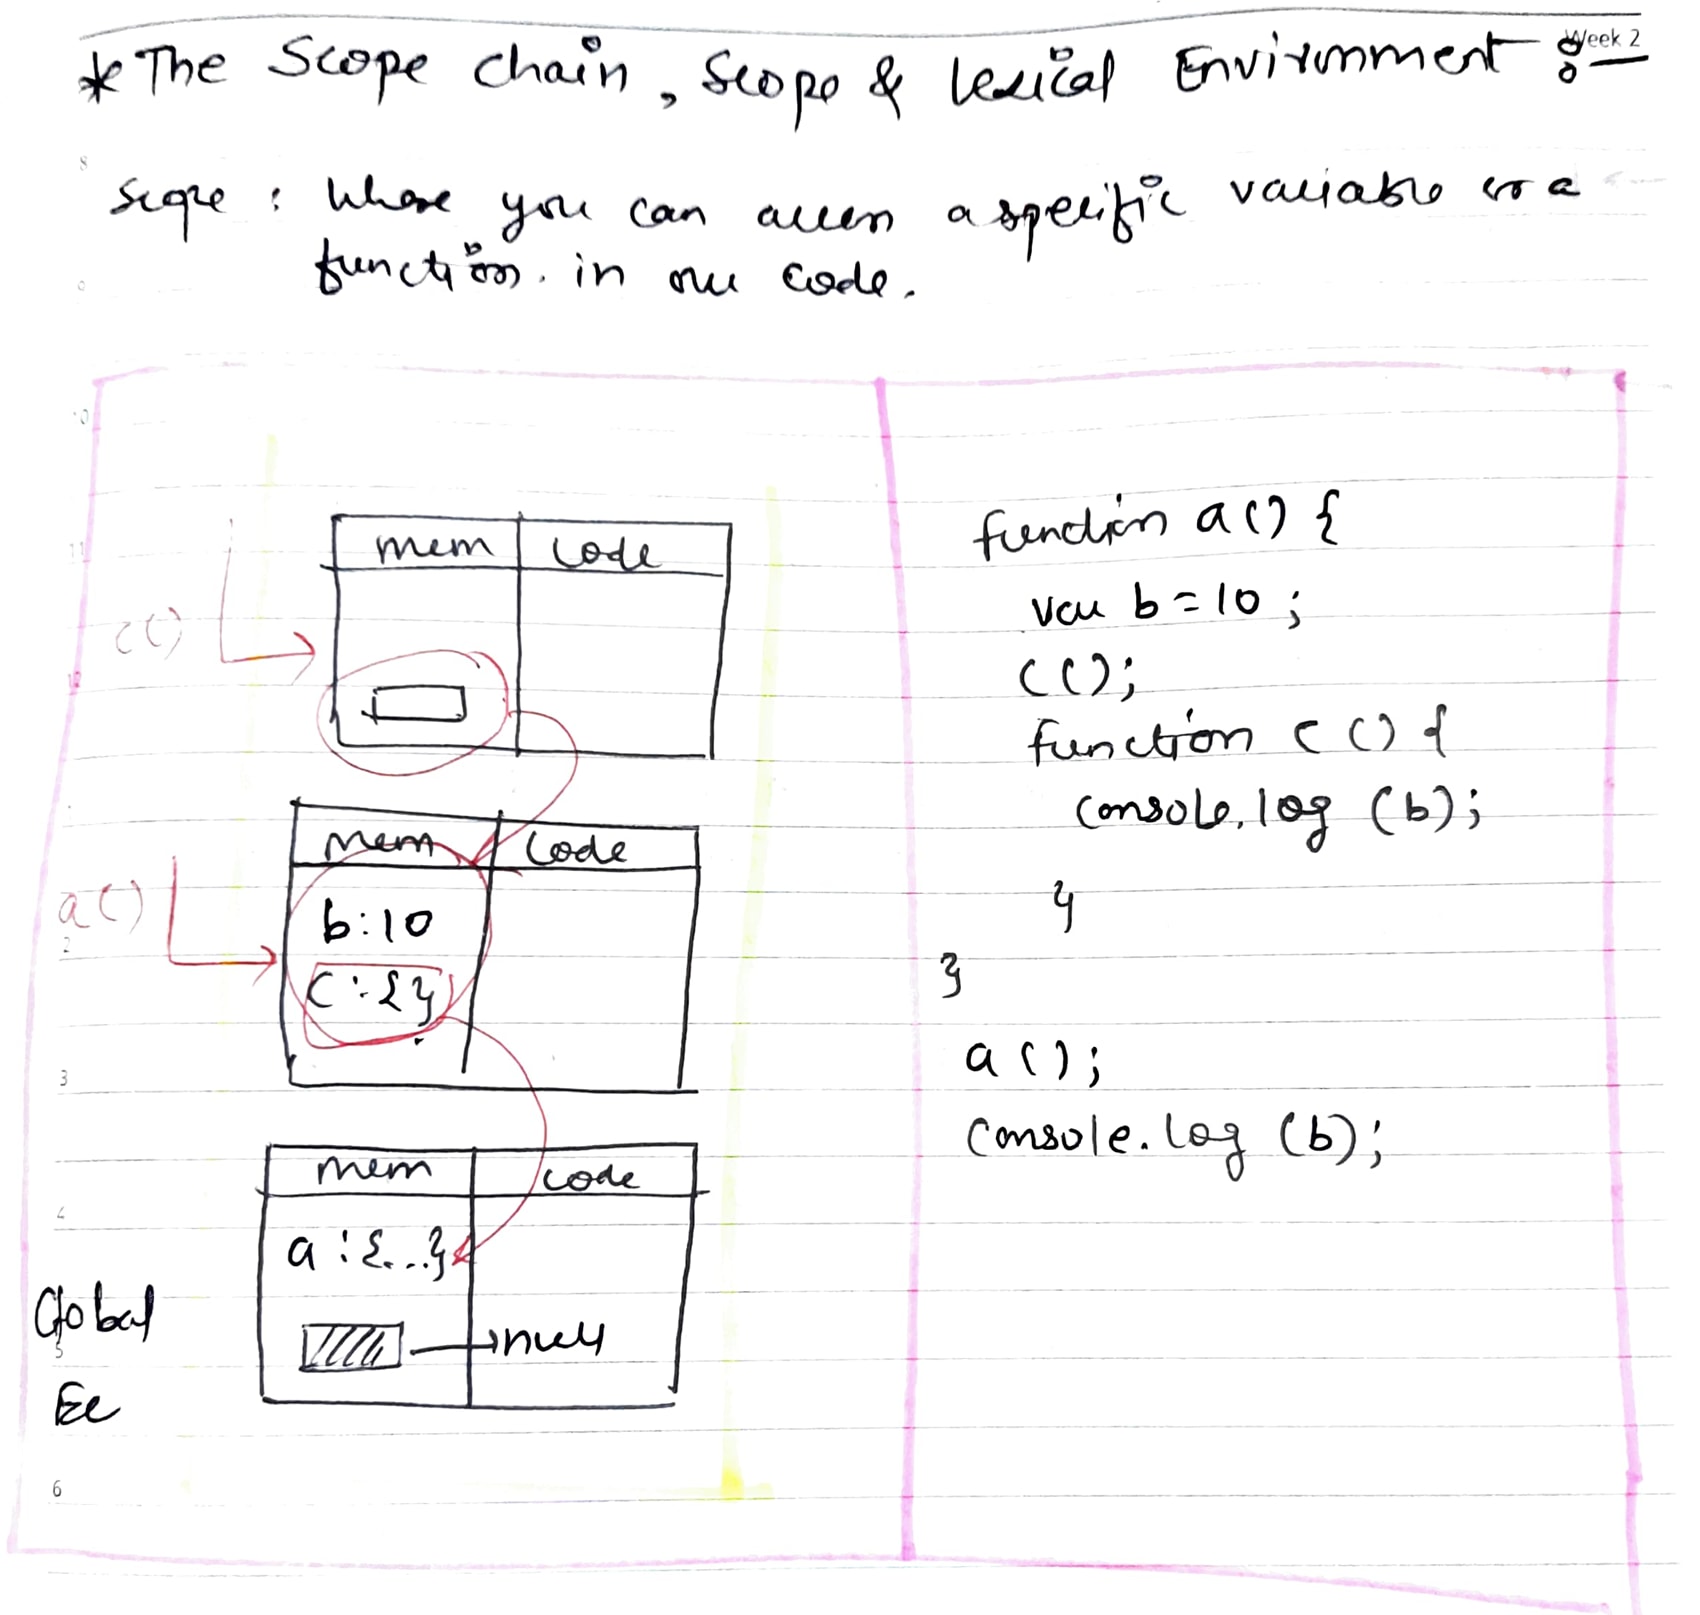 Week 2
* The Scope chain, Scope & lexical Environment :-
8
Scope : Where you can access a specific variable or a
function. in our code.
9
10
11
mem code
c()
12
mem code
a()
b:10
2
c:{}
3
mem code
4
a:{...}
Global
5
→null
Ec
6
function a() {
var b = 10 ;
c();
function c() {
console.log (b);
}
}
a();
console.log (b);